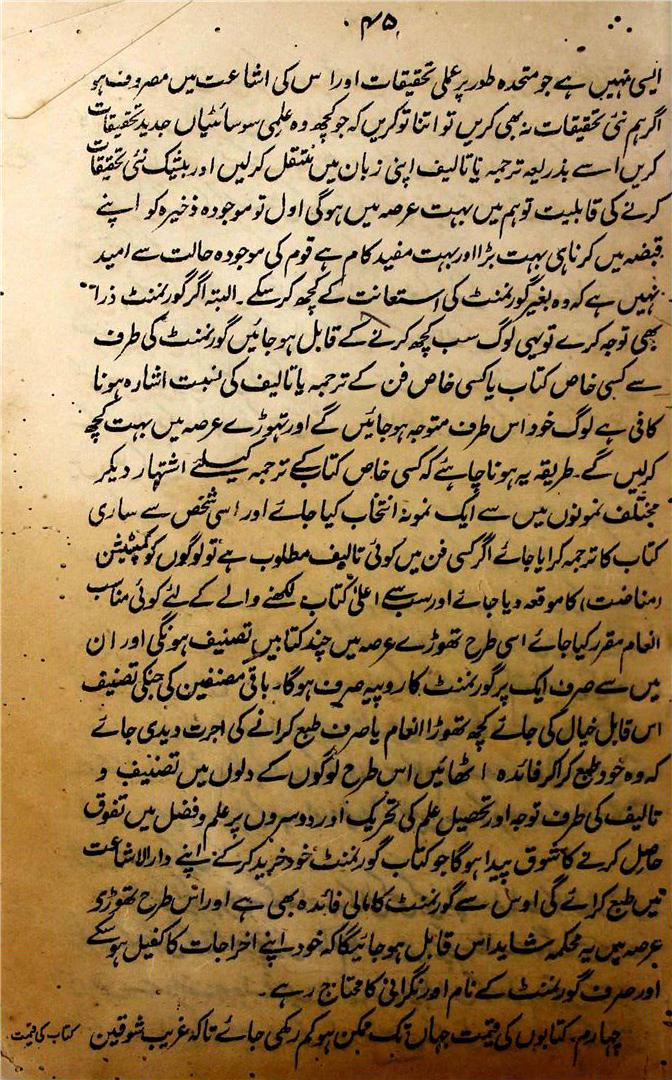 ۴۵
ایسی نہیں ہے جو متحدہ طور پر عملی تحقیقات اور اس کی اشاعت میں مصروف ہو
اگر ہم نئی تحقیقات نہ بھی کریں تو اتنا تو کریں کہ جو کچھ وہ علمی سوسائٹیاں جدید تحقیقات
کریں اسے بذریعہ ترجمہ یا تالیف اپنی زبان میں منتقل کرلیں اور بیشک نئی تحقیقات
کرنے کی قابلیت تو ہم میں بہت عرصہ میں ہوگی اول تو موجودہ ذخیرہ کو اپنے
قبضہ میں کرنا ہی بہت بڑا اور بہت مفید کام ہے قوم کی موجودہ حالت سے امید
نہیں ہے کہ وہ بغیر گورنمنٹ کی استعانت کے کچھ کرسکے۔ البتہ اگر گورنمنٹ ذرا
بھی توجہ کرے تو یہی لوگ سب کچھ کرنے کے قابل ہوجائیں گورنمنٹ کی طرف
سے کسی خاص کتاب یا کسی خاص فن کے ترجمہ یا تالیف کی نسبت اشارہ ہونا
کافی ہے لوگ خود اس طرف متوجہ ہوجائیں گے اور تہوڑے عرصہ میں بہت کچھ
کرلیں گے۔ طریقہ یہ ہونا چاہئے کہ کسی خاص کتاب کے ترجمہ کیلئے اشتہار دیکر
مختلف نمونوں میں سے ایک نمونہ انتخاب کیا جائے اور اسی شخص سے ساری
کتاب کا ترجمہ کرایا جائے اگر کسی فن میں کوئی تالیف مطلوب ہے تو لوگوں کو کمپٹیشن
کا موقعہ دیا جائے اور سب سے اعلیٰ کتاب لکھنے والے کے لئے کوئی مناسب
انعام مقرر کیا جائے اسی طرح تھوڑے عرصہ میں چند کتابیں تصنیف ہونگی اور ان
میں سے صرف ایک پر گورنمنٹ کا روپیہ صرف ہوگا۔ باقی مصنفین کی جنکی تصنیف
اس قابل خیال کی جائے کچھ تھوڑا انعام یا صرف طبع کرانے کی اجرت دیدی جائے
کہ وہ خود طبع کراکر فائدہ اٹھائیں اس طرح لوگوں کے دلوں میں تصنیف و
تالیف کی طرف توجہ اور تحصیل علم کی تحریک اور دوسروں پر علم و فضل میں تفوق
حاصل کرنے کا شوق پیدا ہوگا جو کتاب گورنمنٹ خود خرید کرکے اپنے دار الاشاعت
میں طبع کرائے گی اوس سے گورنمنٹ کا مالی فائدہ بھی ہے اور اس طرح تھوڑی
عرصہ میں یہ محکمہ شاید اس قابل ہوجائیگا کہ خود اپنے اخراجات کا کفیل ہوسکے
اور صرف گورنمنٹ کے نام اور نگرانی کا محتاج رہے۔
چہارم۔ کتابوں کی قیمت جہاں تک ممکن ہو کم رکھی جائے تاکہ غریب شوقین
کتاب کی قیمت